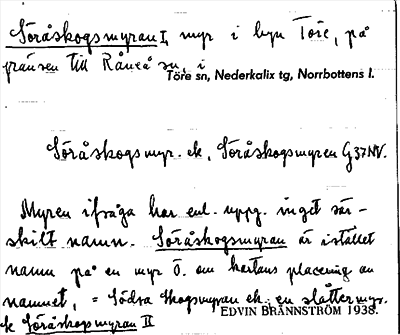 Söråskogsmyran I, myr i byn Töre, på
gränsen till Råneå sn, i
Töre sn, Nederkalix tg, Norrbottens l.
Söråskogsmyr. ek, Söråskogsmyren G 37 NV.
Myren ifråga har enl. uppg. inget sär-
skilt namn. Söråskogsmyran är istället
namn på en myr Ö. om kartans placering av
namnet, = Södra Skogsmyran ek: en slåttermyr.
se Söråskogsmyran II
EDVIN BRÄNNSTRÖM 1938.